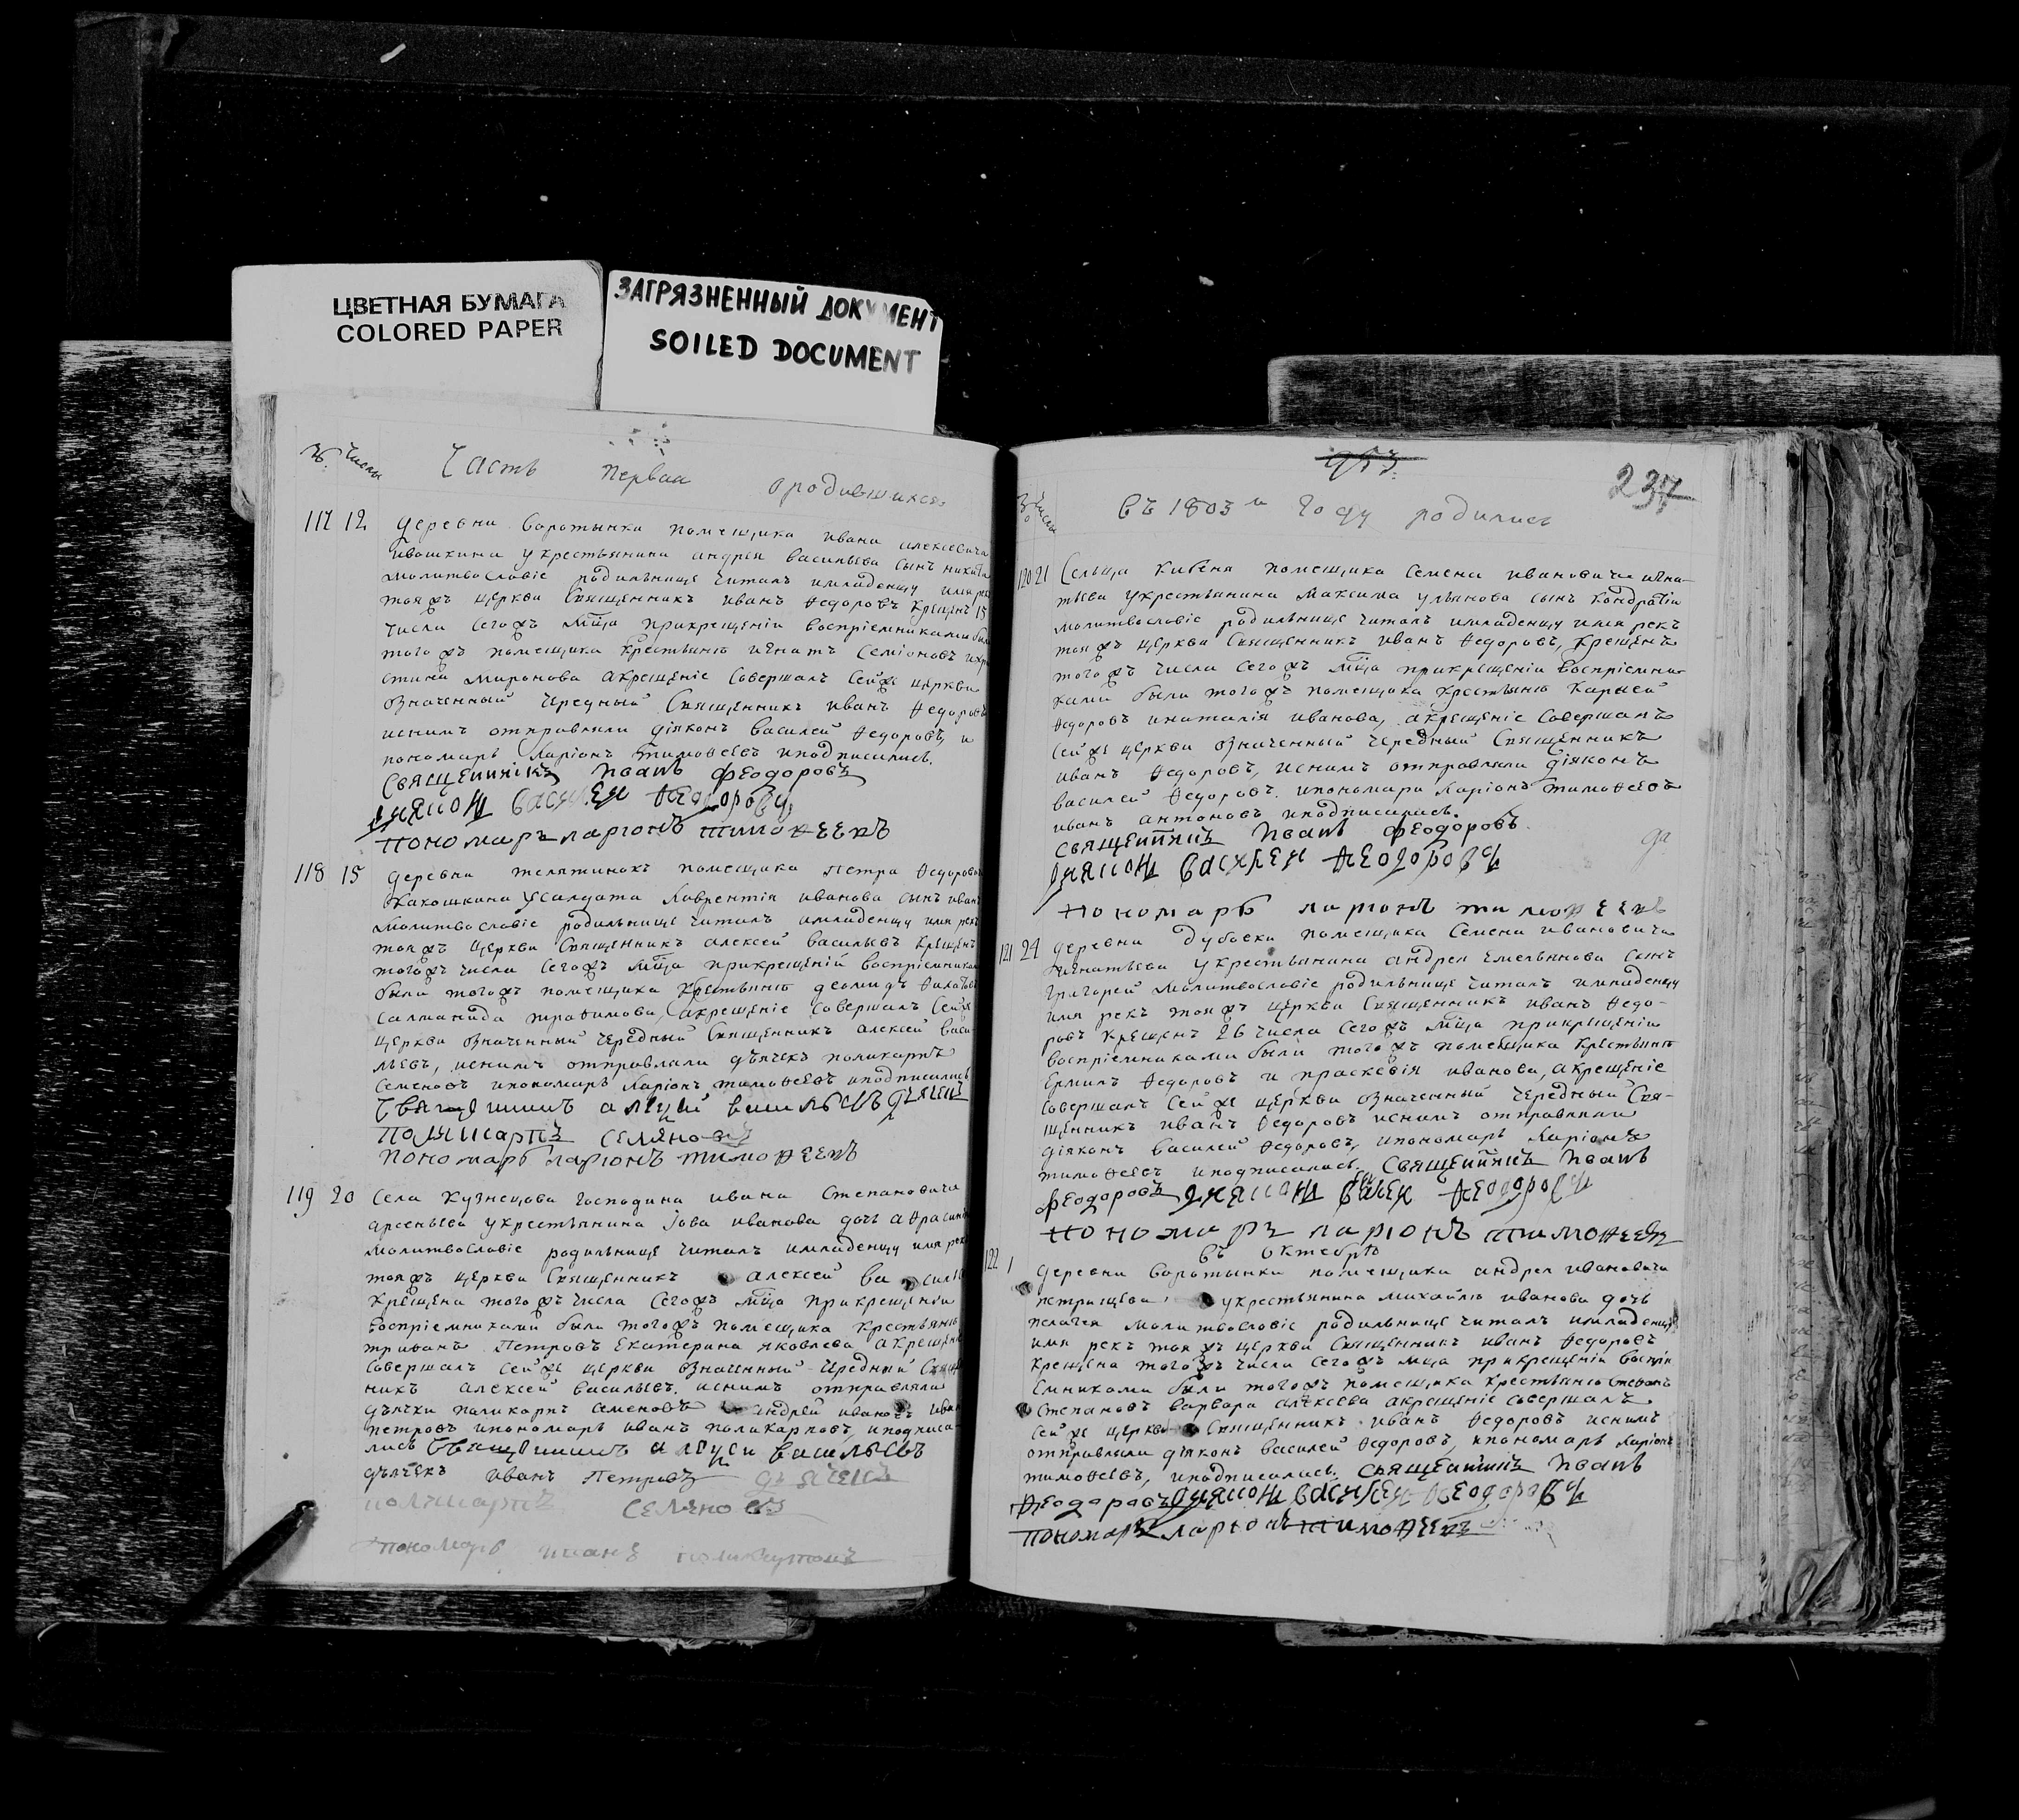 ЦВЕТНАЯ БУМАГА
COLORED PAPER
ЗАГРЯЗНЕННЫЙ ДОКУМЕНТ
SOILED DOCUMENT
№ Числы
Часть первая о родившихся
117 12 деревни Воротынки помещика ивана алексеевича
ивашкина укрестьянина андрея васильева сынъ никита
молитвословіе родильнице читалъ имладенцу имя рекъ
тояжъ церкви Священникъ иванъ ѳедоровъ крещенъ 15
числа сегожъ мца прикрещеніи воспріемниками были
тогожъ помещика крестьяня игнатъ семіоновъ
мironова акрещеніе совершалъ сейже церкви
означенный чредный Священникъ иванъ ѳедоровъ
иснимъ отправляли діяконъ василей ѳедоровъ и
пономарь Ларіонъ тимоѳеевъ иподписались.
Священникъ Иванъ Феодоровъ
диякон василей ѳеодоровъ
пономаръ ларионъ тимоѳеевъ
118 15 деревни телятинокъ помещика петра ѳедоровича
усалдата Лаврентія иванова сынъ иванъ
молитвословіе родильнице читалъ имладенцу имя рекъ
тояжъ церкви Священникъ алексей васильевъ крещенъ
тогожъ числа сегожъ мца прикрещеній воспріемниками
были тогожъ помещика крестьяня деомидъ
саламанида траѳимова, акрещеніе совершалъ сейже
церкви означенный чередный Священникъ алексей васи-
льевъ, иснимъ отправляли дьячекъ поликарпъ
семеновъ ипономарь Ларіонъ тимоѳеевъ иподписались
Священникъ алексей васильевъ дьячекъ
поликарпъ семеновъ
пономарь ларионъ тимоѳеевъ
119 20 Села Кузнецова господина ивана Степановича
арсеньева укрестьянина Іова иванова дочь
молитвословіе родильнице читалъ имладенцу имя рекъ
тояжъ церкви Священникъ алексей васильевъ
крещена тогожъ числа сегожъ мца прикрещеніи
воспріемниками были тогожъ помещика крестьяня
Петровъ Екатерина яковлева акрещеніе
совершалъ сейже церкви означенный чредный Священ
никъ алексей васильевъ. иснимъ отправляли
дьячки поликарпъ семеновъ андрей ивановъ иванъ
петровъ ипономарь иванъ поликарповъ, иподписа-
лись Священникъ алексей васильевъ
дьячекъ иванъ Петровъ дьячекъ
поликарпъ семеновъ
пономарь иванъ поликарповъ
953
237
Числы
въ 1803м году родились
120 21 Сельца Кибеня помещика семена ивановича игна-
тьева укрестьянина максима ульянова сынъ кондратіи
молитвословіе родильнице читалъ имладенцу имя рекъ
тояжъ церкви Священникъ иванъ ѳедоровъ, крещенъ
тогожъ числа сегожъ мца прикрещеніи воспріемни-
ками были тогожъ помещика крестьяня
ѳедоровъ инаталія иванова, акрещеніе совершалъ
сейже церкви означенный чередный Священникъ
иванъ ѳедоровъ, иснимъ отправляли діяконъ
василей ѳедоровъ. ипономари Ларіонъ тимоѳеевъ
иванъ антоновъ иподписались.
священникъ Иванъ Феодоровъ
диякон василей ѳеодоровъ
пономарь ларионъ тимоѳеевъ
121 24 деревни дубоски помещика Семена ивановича
игнатьева укрестьянина андрея Емельянова сынъ
григорей молитвословіе родильнице читалъ имладенцу
имя рекъ тояжъ церкви Священникъ иванъ ѳедо-
ровъ крещенъ 26 числа сегожъ мца прикрещеніи
воспріемниками были тогожъ помещика крестьяня
Ермилъ ѳедоровъ и праскевія иванова, акрещеніе
совершалъ сейже церкви означенный чередный Свя-
щенникъ иванъ ѳедоровъ иснимъ отправляли
діяконъ василей ѳедоровъ, ипономарь Ларіонъ
тимоѳеевъ иподписались. Священникъ Иванъ
Феодоровъ диякон василей ѳеодоровъ
пономаръ ларионъ тимоѳеевъ
въ октебрѣ
122 1 деревни Воротынки помещика андрея ивановича
петрищева укрестьянина михайлы иванова дочь
пелагея молитвословіе родильнице читалъ имладенцу
имя рекъ тояжъ церкви Священникъ иванъ ѳедоровъ
крещена тогожъ числа сегожъ мца прикрещеніи воспрі
емниками были тогожъ помещика крестьяня
Степановъ варвара алексеева акрещеніе совершалъ
сейже церкви Священникъ иванъ ѳедоровъ иснимъ
отправляли діяконъ василей ѳедоровъ, ипономарь Ларіонъ
тимоѳеевъ, иподписались. священникъ Иванъ
Ѳеодоровъ диякон василей ѳеодоровъ
пономаръ ларионъ тимоѳеевъ